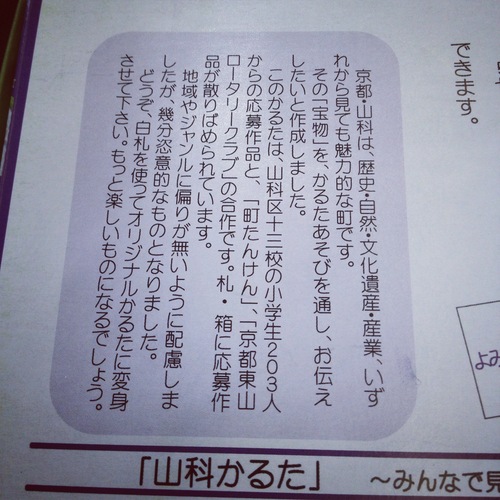 できます。
京都・山科は、歴史・自然・文化遺産・産業、いず
れから見ても魅力的な町です。
その「宝物」を、かるたあそびを通し、お伝え
したいと作成しました。
このかるたは、山科区十三校の小学生203人
からの応募作品と、「町たんけん」、「京都東山
ロータリークラブ」の合作です。札・箱に応募作
品が散りばめられています。
地域やジャンルに偏りが無いように配慮しま
したが、幾分恣意的なものとなりました。
どうぞ、白札を使ってオリジナルかるたに変身
させて下さい。もっと楽しいものになるでしょう。
よみ
「山科かるた」 ~みんなで見